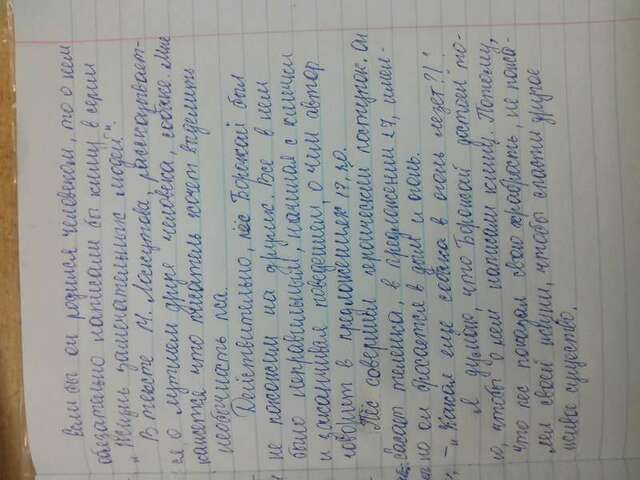 если бы он родился человеком, то о нем
обязательно написали бы книгу в серии
„Жизнь замечательных людей".
В тексте М. Лоскутова, рассказывает-
ся о лучшем друге человека, собаке. Мне
кажется что писатель хочет выделить
необычность пса.
Действительно, пёс Бородкой был
не похожим на других. Все в нем
было неправильным, начиная с клички
и заканчивая поведением, о чем автор
говорит в предложениях 17, 20.
Пёс совершил героический поступок. Он
спасает теленка, в предложении 27, имен-
но он бросается в дым и огонь.
„ - Какая еще собака в огонь лезет?!"
Я думаю, что Бородкой достоин то-
го, чтобы о нем написали книгу. Потому,
что пес показал свою храбрость, не пожа-
лел своей шкуры, чтобы спасти другое
живое существо.